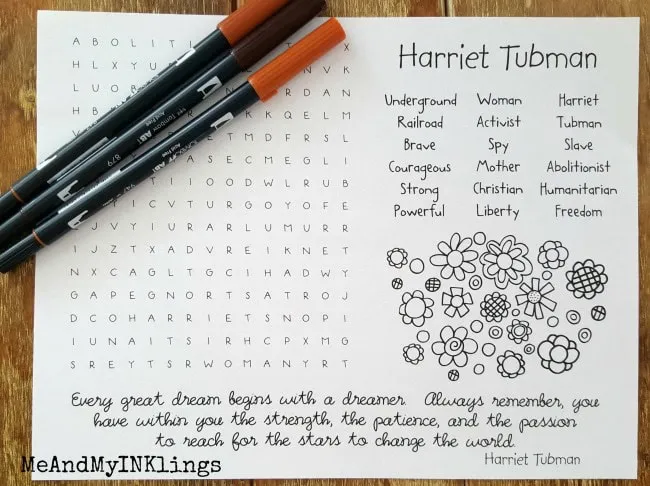 Harriet Tubman
A B O L I T I T X
H L X Y U N V K
L U O B R D A N
H B K K Q E L M
E T M D F R S L
A S E C M E G L I
T I I O O D W L R U B
I C V T U R G O Y O F E
J V Y I U R A R L U M U R R
I J Z T X A D V R E I K N E T
N X C A G L T G C I H A D W Y
G A P E G N O R T S A T R O J
D C O H A R R I E T S N O P I
I U N A I T S I R H C P X M G
S R E Y T S R W O M A N Y R T
Underground Woman Harriet
Railroad Activist Tubman
Brave Spy Slave
Courageous Mother Abolitionist
Strong Christian Humanitarian
Powerful Liberty Freedom
879
Tombow ABT
Every great dream begins with a dreamer Always remember, you
have within you the strength, the patience, and the passion
to reach for the stars to change the world.
Harriet Tubman
MeAndMyINKlings